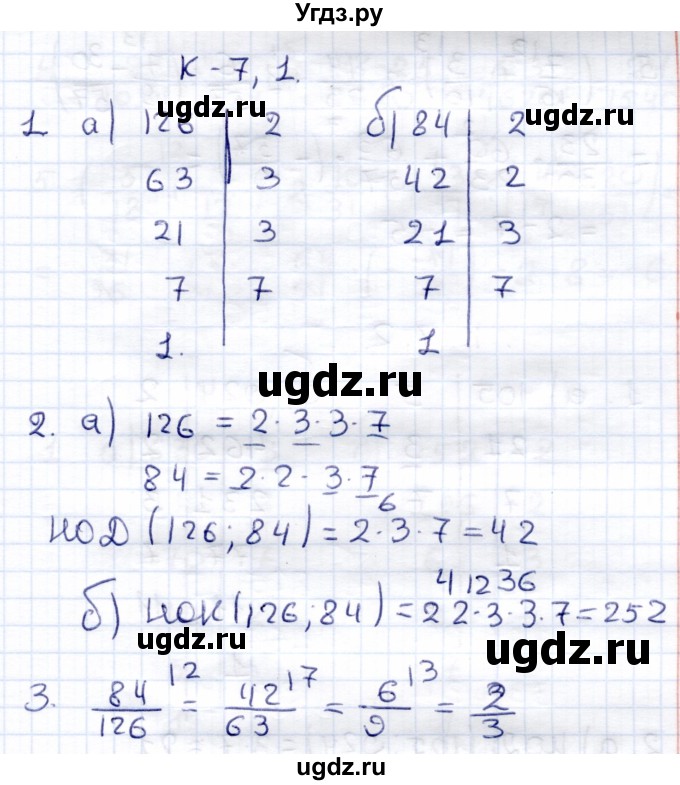 Угдз.ру
К-7, 1.
1 а) 126 | 2 б) 84 | 2
63 | 3 42 | 2
21 | 3 21 | 3
7 | 7 7 | 7
1. 1
2. а) 126 = 2·3·3·7
84 = 2·2·3·7
6
НОД (126; 84) = 2·3·7 = 42
4 12 36
б) НОК (126; 84) = 2 2·3·3·7 = 252
3. 84/126 |2 = 42/63 |7 = 6/9 |3 = 2/3
ugdz.ru
ugdz.ru
ugdz.ru
ugdz.ru
ugdz.ru
ugdz.ru